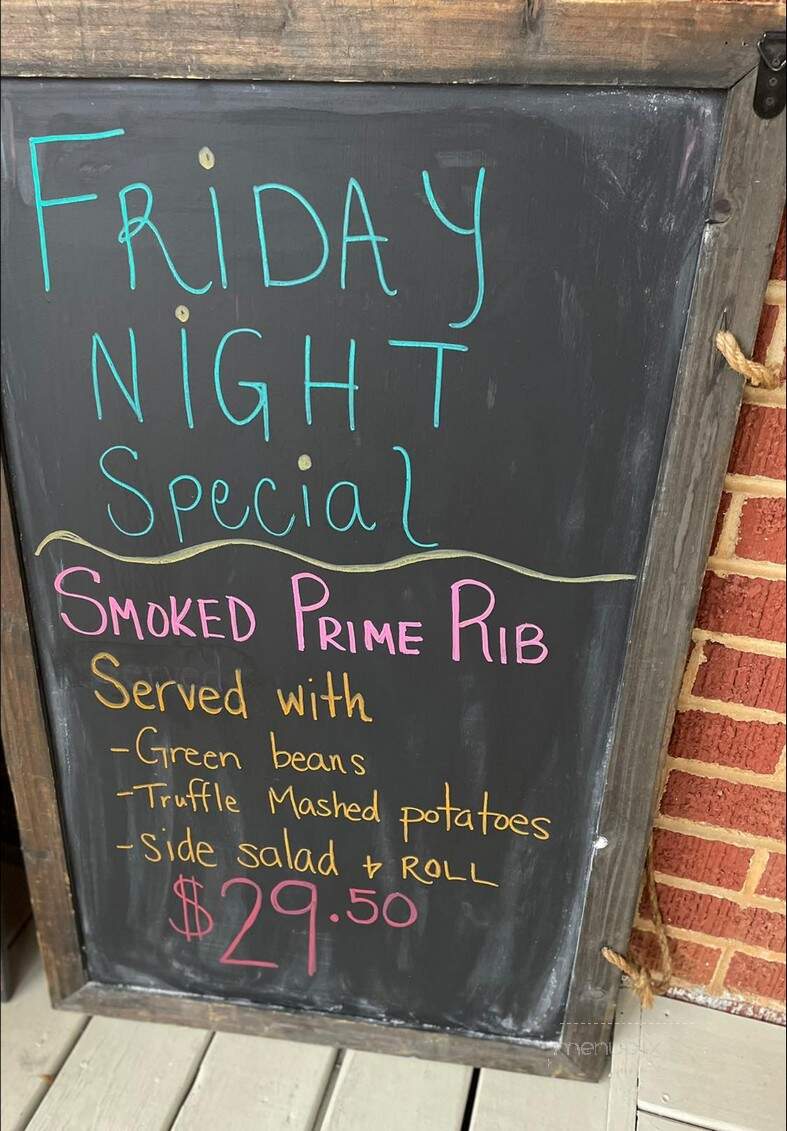 FRiDAY
NiGHT
Special
SMOKED PRIME RIB
Served with
-Green beans
-Truffle Mashed potatoes
-side salad & ROLL
$29.50
menupix